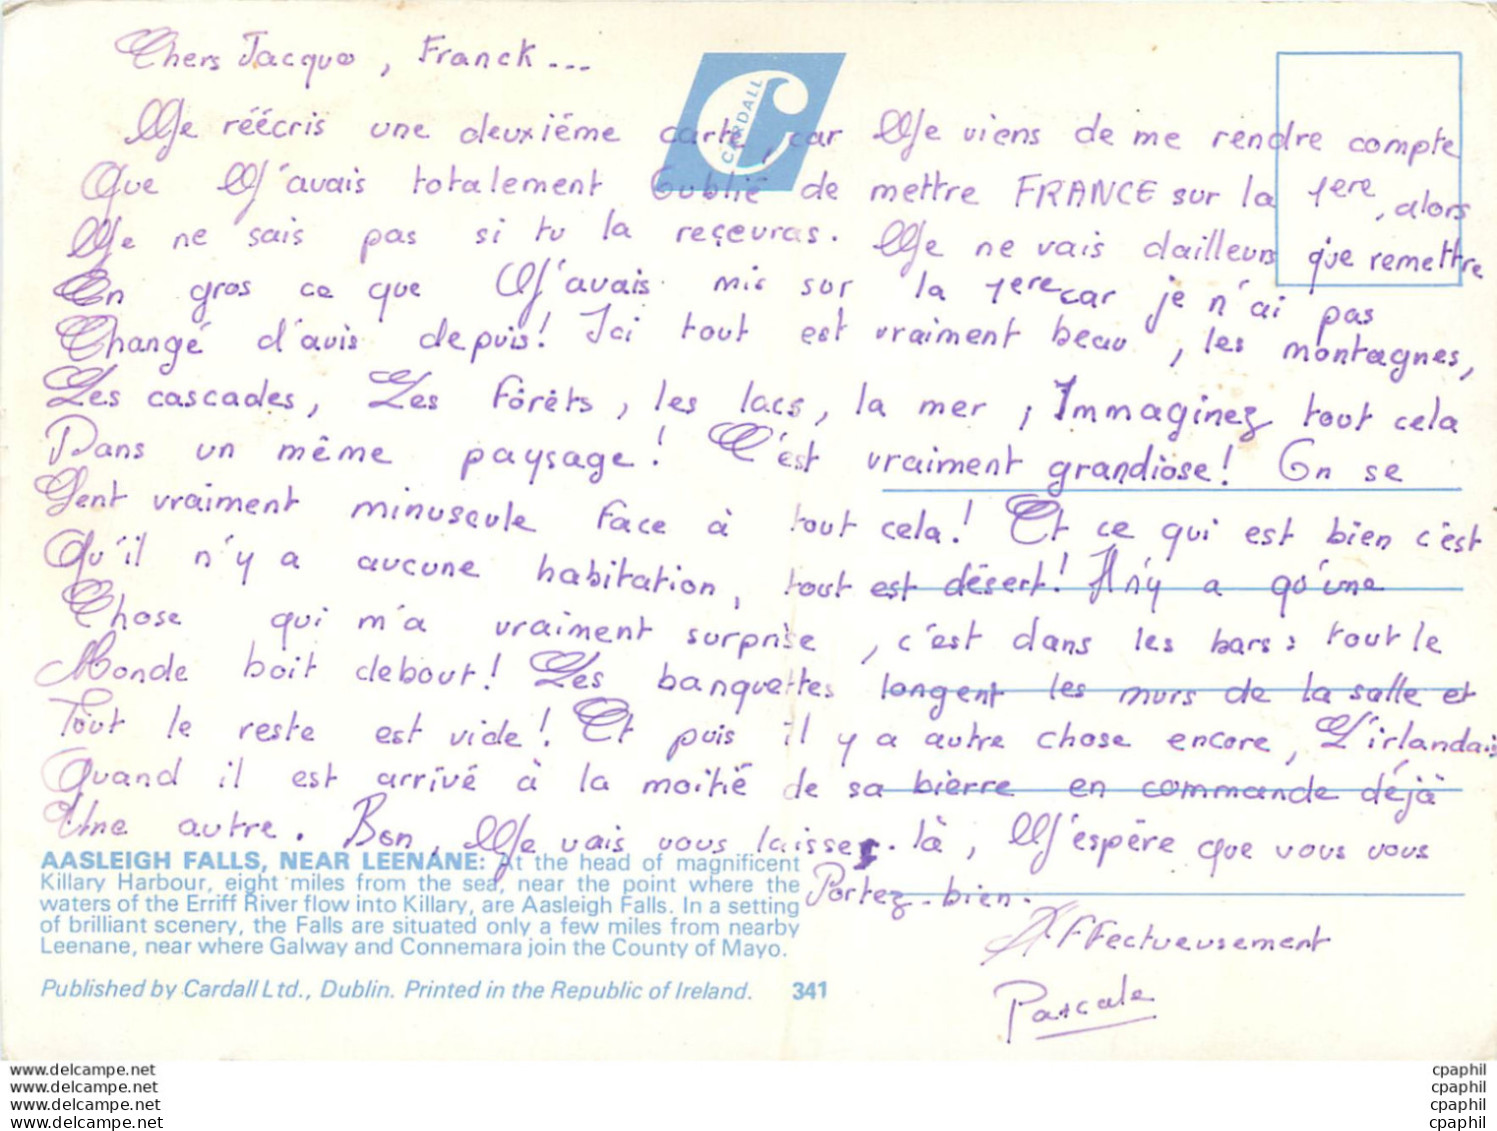 Chers Jacquo, Franck...
Je réécris une deuxième carte, car Je viens de me rendre compte
Que J'avais totalement Oublié de mettre FRANCE sur la 1ere, alors
Je ne sais pas si tu la reçeuras. Je ne vais dailleurs que remettre
En gros ce que J'avais mis sur la 1ere car je n'ai pas
Changé d'avis depuis! Ici tout est vraiment beau, les montagnes,
Les cascades, Les forêts, les lacs, la mer, Immaginez tout cela
Dans un même paysage! C'est vraiment grandiose! On se
Sent vraiment minuscule face à tout cela! Et ce qui est bien c'est
Qu'il n'y a aucune habitation, tout est désert! Il n'y a qu'une
Chose qui m'a vraiment surprise, c'est dans les bars: tout le
Monde boit debout! Les banquettes longent les murs de la salle et
Tout le reste est vide! Et puis il y a autre chose encore, L'irlandais
Quand il est arrivé à la moitié de sa bierre en commande déjà
Une autre. Bon, Je vais vous laisser là, J'espère que vous vous
Portez bien.
Affectueusement
Pascale
CARDALL
AASLEIGH FALLS, NEAR LEENANE: At the head of magnificent
Killary Harbour, eight miles from the sea, near the point where the
waters of the Erriff River flow into Killary, are Aasleigh Falls. In a setting
of brilliant scenery, the Falls are situated only a few miles from nearby
Leenane, near where Galway and Connemara join the County of Mayo.
Published by Cardall Ltd., Dublin. Printed in the Republic of Ireland. 341
www.delcampe.net
www.delcampe.net
www.delcampe.net
www.delcampe.net
cpaphil
cpaphil
cpaphil
cpaphil